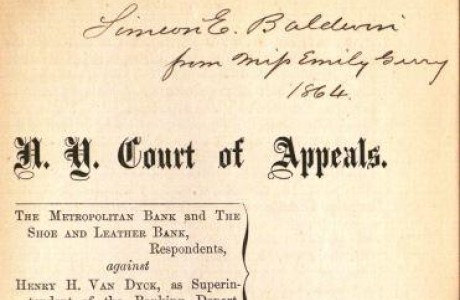 Simeon E. Baldwin
from Miss Emily Gerry
1864.
N. Y. Court of Appeals.
THE METROPOLITAN BANK and THE
SHOE AND LEATHER BANK,
Respondents,
against
HENRY H. VAN DYCK, as Superin-
tendent of the Banking Depart